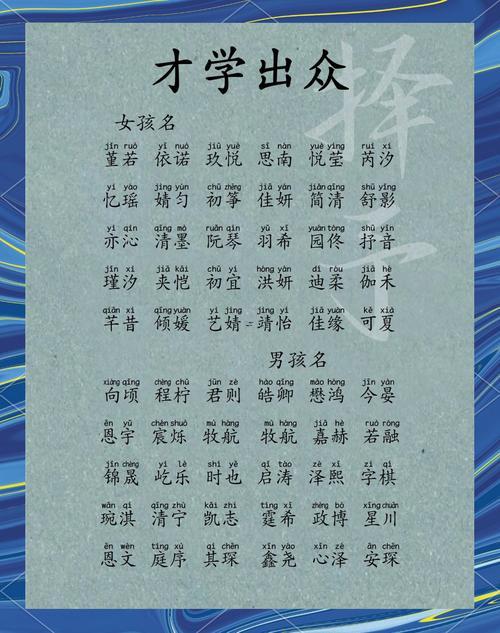 才学出众
择
女孩名
jǐn ruò yī nuò jiǔ yuè sī nán yuè yíng ruì xī
堇若 依诺 玖悦 思南 悦莹 芮汐
yì yáo jìng yún chū zhēng jiā yán jiǎn qīng shū yǐng
忆瑶 婧匀 初筝 佳妍 简清 舒影
yì qìn qīng mò ruǎn qín yǔ xī yuán dōng shū yīn
亦沁 清墨 阮琴 羽希 园佟 抒音
jǐn xī jiā kǎi chū yí hóng yán dí róu jiā hé
瑾汐 夹恺 初宜 洪妍 迪柔 伽禾
qiān xī qīng yuàn yì jìng jìng yí jiā yuán kě xià
芊昔 倾媛 艺婧 靖怡 佳缘 可夏
男孩名
xiàng qǐng chéng níng jūn zé hào qīng mào hóng jīn yàn
向顷 程柠 君则 皓卿 懋鸿 今晏
ēn yǔ chén shuò mù háng mù háng jiā hè ruò róng
恩宇 宸烁 牧航 牧航 嘉赫 若融
jǐn chéng yì lè shí yě qǐ tāo zé xī zǐ qí
锦晟 屹乐 时也 启涛 泽熙 字棋
wǎn qí qīng níng kǎi zhì tíng xī zhèng bó xīng chuān
琬淇 清宁 凯志 霆希 政博 星川
ēn wén tíng xù qí chēn xīn yáo xīn zé ān chēn
恩文 庭序 其琛 鑫尧 心泽 安琛